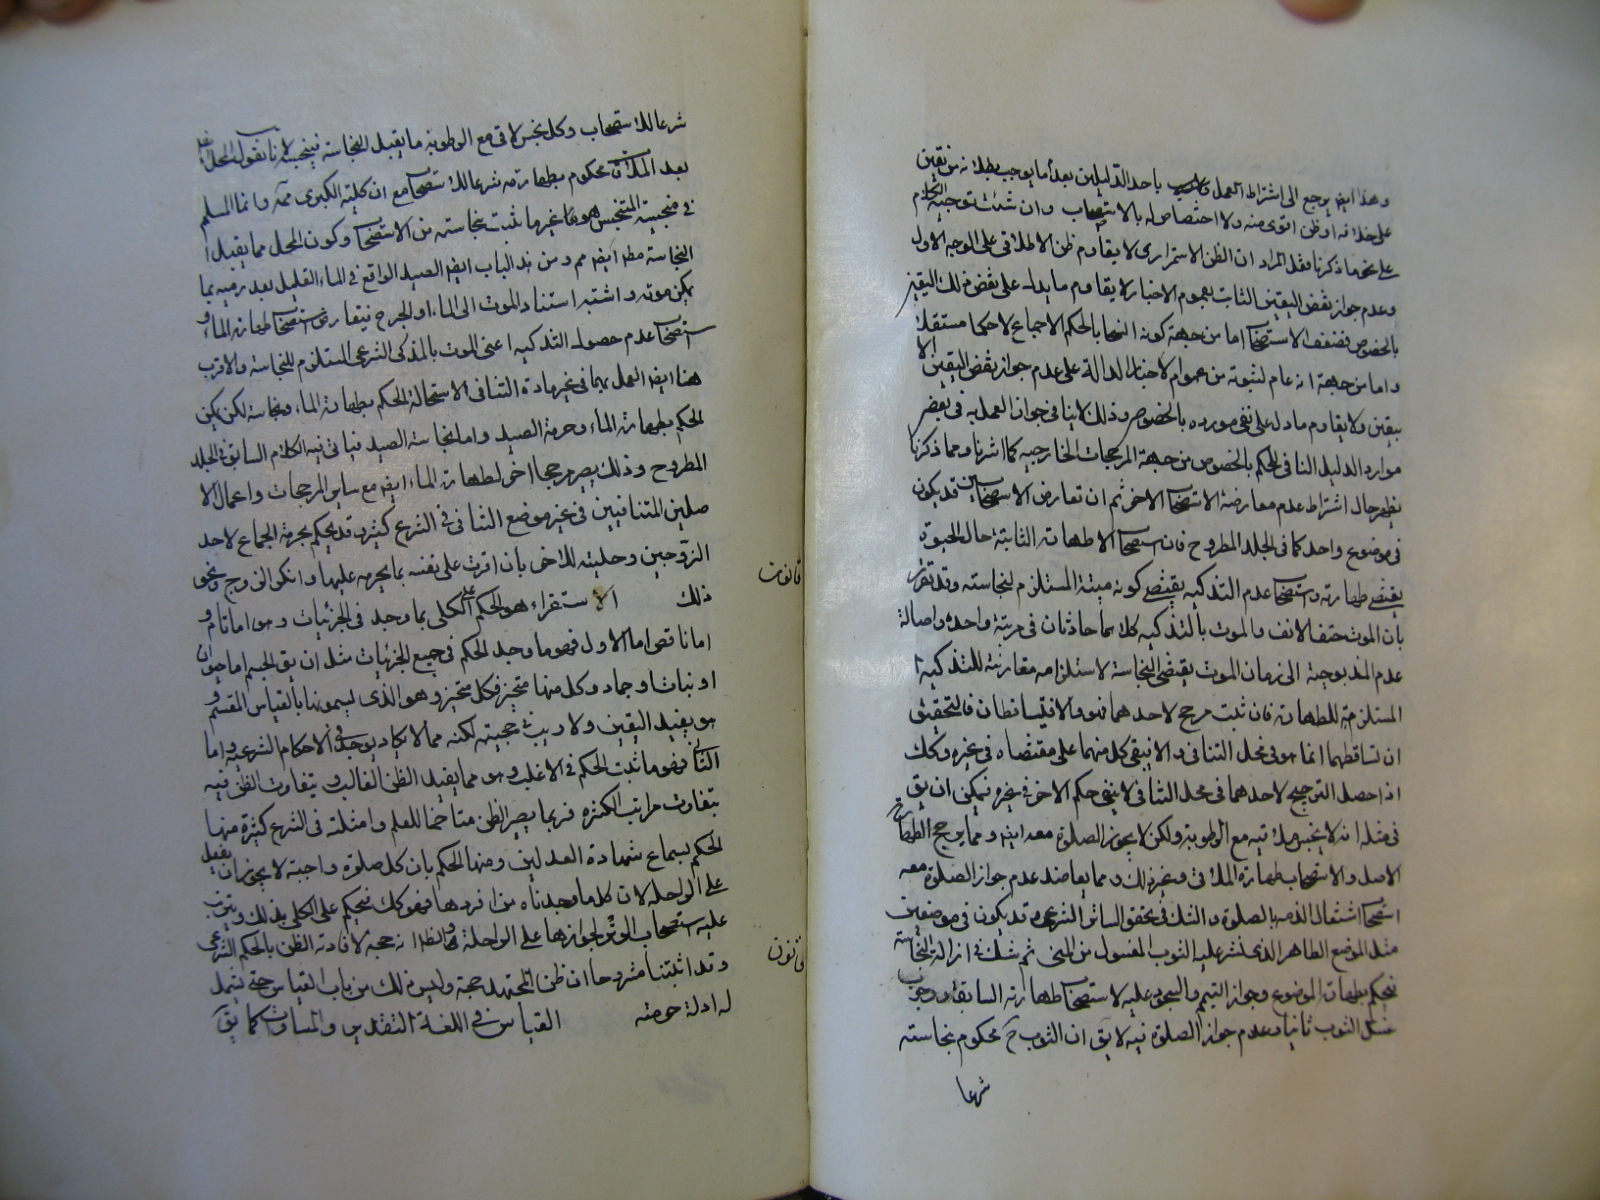 وهذا ايضا يرجع الى اشتراط العمل باحد الدليلين بعدم ما يوجب بطلانه من يقين
على خلافه او ظن اقوى منه ولا اختصاص له بالاستصحاب وان شئت توجيه الكلام
على نحو ما ذكرنا فقل المراد ان الظن الاستمراري لا يقاوم ظن الاطلاقي على الوجه الاول
وعدم جواز نقض اليقين الثابت بعموم الاخبار لا يقاوم ما يدل على نقض ذلك اليقين
بالخصوص فضعف الاستصحاب اما من جهة كونه انسحابا بالحكم الاجماع لا حكما مستقلا
واما من جهة انه عام لثبوته من عموم الاخبار الدالة على عدم جواز نقض اليقين الا
بيقين ولا يقاوم ما دل على نفي مورده بالخصوص وذلك لا ينافي جواز العمل به في بعض
موارد الدليل النافي للحكم بالخصوص من جهة المرجحات الخارجية كما اشرنا ومما ذكرنا
يظهر حال اشتراط عدم معارضة الاستصحاب الاخر ثم ان تعارض الاستصحابين قد يكون
في موضوع واحد كما في الجلد المطروح فان استصحاب الطهارة الثابتة حال الحيوة
يقتضي طهارته واستصحاب عدم التذكية يقتضي كونه ميتة المستلزم لنجاسته وقد تقرر
بان الموت حتف الانف والموت بالتذكية كلاهما حادثان في مرتبة واحدة واصالة
عدم المذبوحية الى زمان الموت يقتضي النجاسة لاستلزامه مقارنته للتذكية
المستلزمة للطهارة فان ثبت مرجح لاحدهما فهو والا فيتساقطان فالتحقيق
ان تساقطهما انما هو في محل التنافي والا فيبقى كل منهما على مقتضاه في غيره وكك
اذا حصل الترجيح لاحدهما في محل التنافي لا ينفي حكم الاخر في غيره فيمكن ان يق
في مثله انه لا ينجس ملاقيه مع الرطوبة ولكن لا يجوز الصلوة معه ايضا ومما يرجح الطهارة
الاصل والاستصحاب طهارة الملاقي وغير ذلك ومما يعاضد عدم جواز الصلوة معه
استصحاب اشتغال الذمة بالصلوة والشك في تحقق الساتر الشرعي وقد يكون في موضعين
مثل الموضع الطاهر الذي نشر عليه الثوب المغسول من المني ثم شك في ازالة النجاسة
فيحكم بطهارة الموضوع وجواز التيمم والسجود عليه لاستصحاب طهارته السابقة ووجوب
غسل الثوب ثانيا وعدم جواز الصلوة فيه لا يق ان الثوب ح محكوم بنجاسته
شرعا
شرعا للاستصحاب وكل نجس لاقى مع الرطوبة ما يقبل النجاسة فينجسه لانا نقول المحل
بعد الملاقات محكوم بطهارته شرعا للاستصحاب مع ان كلية الكبرى ممنوعة وانما المسلم
في منجسية المتنجس هو ما غير ما ثبت نجاسته من الاستصحاب وكون المحل مما يقبل
النجاسة مطلقا ايضا مم ومن هذا الباب ايضا الصيد الواقع في الماء القليل بعد رميه بما
يمكن موته واشتبه استناد الموت الى الماء او الجرح فيتعارض استصحاب طهارة الماء و
استصحاب عدم حصول التذكية اعني الموت بالمذكي الشرعي المستلزم للنجاسة والاقرب
هنا ايضا العمل بهما في غير مادة التنافي لاستحالة الحكم بطهارة الماء ونجاسته لكن يمكن
الحكم بطهارة الماء وحرمة الصيد واما نجاسة الصيد فياتي فيه الكلام السابق في الجلد
المطروح وذلك يصير مرجحا اخر لطهارة الماء ايضا مع ساير المرجحات واعمال الا
صلين المتنافيين في غير موضع التنافي في الشرع كثير وقد يحكم بحرمة الجماع لاحد
الزوجين وحليته للاخر بان اقرت على نفسه بما يحرمه عليها وانكر الزوج ونحو
ذلك
قانون
الاستقراء هو الحكم على الكلي بما وجد في الجزئيات وهو اما تام و
اما ناقص اما الاول فهو ما وجد الحكم في جميع الجزئيات مثل ان يق الجسم اما حيوان
او نبات او جماد وكل منها متحيز فكل متحيز وهو الذي يسمونها بالقياس المقسم و
هو يفيد اليقين ولا ريب في حجيته لكنه مما لا يكاد يوجد في الاحكام الشرعية واما
الثاني فهو ما ثبت الحكم في الاغلب وهو مما يفيد الظن الغالب ويتفاوت الظن فيه
بتفاوت مراتب الكثرة فربما يصير الظن متاخما للعلم وامثلته في الشرع كثيرة منها
الحكم بسماع شهادة العدلين ومنها الحكم بان كل صلوة واجبة لا يجوز ان يفعل
على الراحلة لان كل ما وجدناه من افرادها فهو كك فنحكم على الكلي بذلك ويترتب
عليه استصحاب الوتر لجوازها على الراحلة والظ انه حجة لافادته الظن بالحكم الشرعي
وقد اثبتنا مشروحا ان ظن المجتهد حجة وليس ذلك من باب القياس حتى يشمل
له ادلة حرمته
قانون
القياس في اللغة التقدير والمساوات كما يق